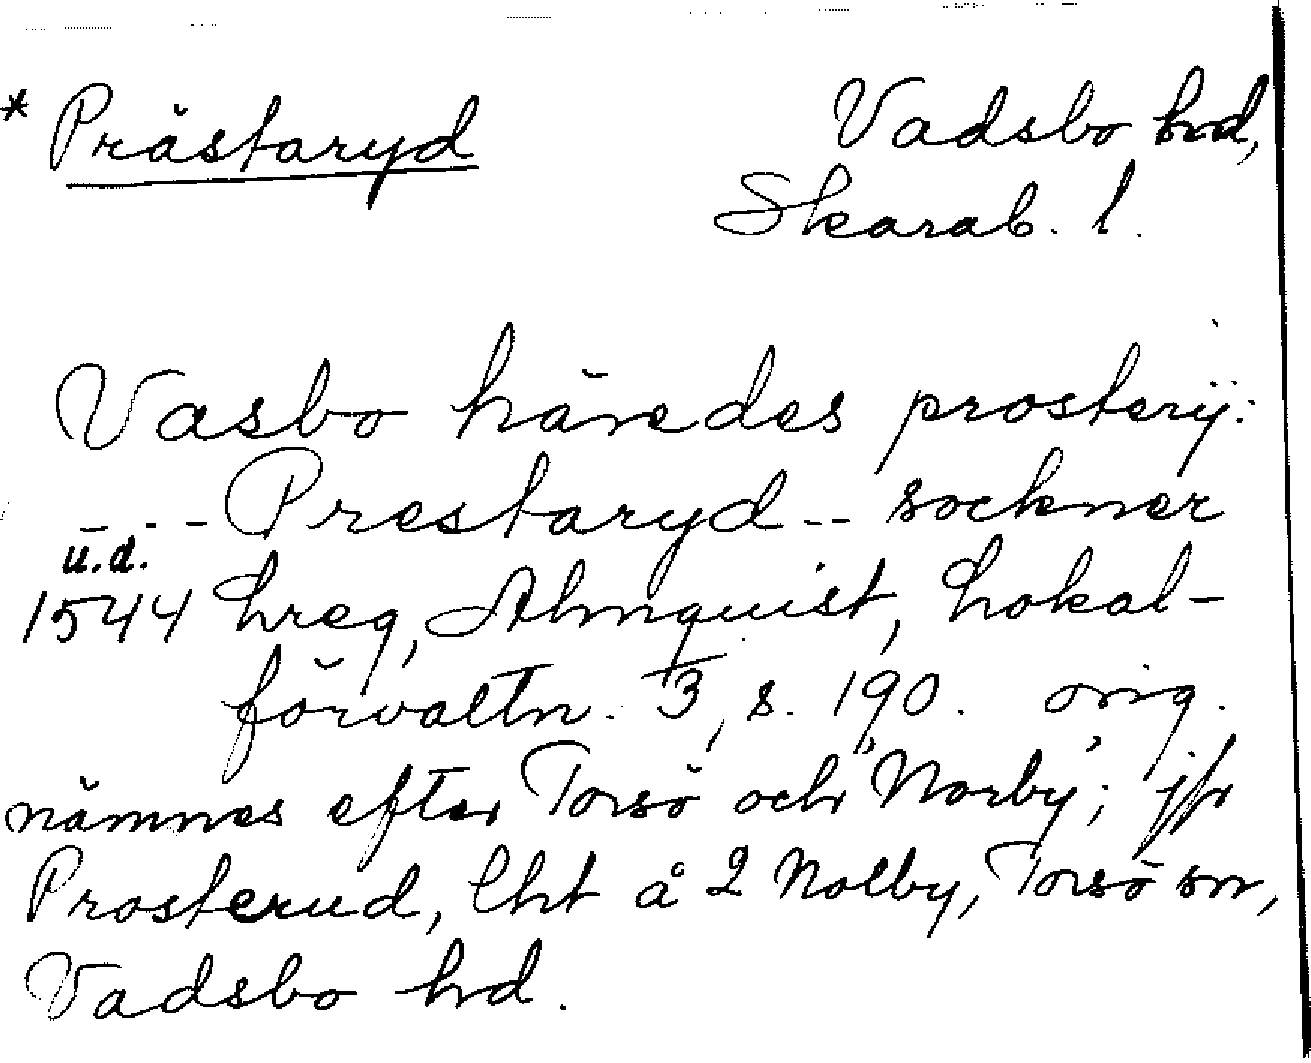 * Prästaryd
Vadsbo hrd,
Skarab. l.
Vasbo häredes prosterij:
--- Prestaryd -- sockner
u.d.
1544 hreg, Almquist, Lokal-
förvaltn. 3, s. 190. orig.
nämnes efter Torsö och "Norby"; jfr
Prosterud, lht å 2 Nolby, Torsö sn,
Vadsbo hd.